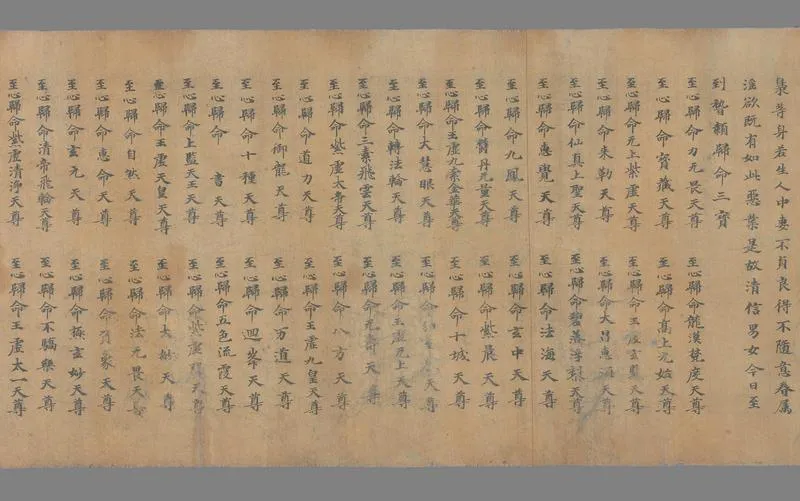 梟等身若生人中妻不貞良得不隨意眷属
淫欲既有如此惡業是故清信男女今日至
到顙歸命三寶
至心歸命力无畏天尊 至心歸命龍漢梵度天尊
至心歸命寶藏天尊 至心歸命高上元始天尊
至心歸命元上紫虛天尊 至心歸命玉虛玄天尊
至心歸命来勒天尊 至心歸命大惠海天尊
至心歸命仙真上聖天尊 至心歸命碧落浮黎天尊
至心歸命惠覺天尊 至心歸命法海天尊
至心歸命九鳳天尊 至心歸命玄中天尊
至心歸命丹无量天尊 至心歸命紫晨天尊
至心歸命玉虛九素金華天尊 至心歸命十城天尊
至心歸命大慧眼天尊 至心歸命天尊
至心歸命轉法輪天尊 至心歸命玉虛元上天尊
至心歸命三素飛雲天尊 至心歸命元天尊
至心歸命紫虛太帝天尊 至心歸命八方天尊
至心歸命道力天尊 至心歸命玉虛九皇天尊
至心歸命御龍天尊 至心歸命万道天尊
至心歸命十種天尊 至心歸命迴天尊
至心歸命書天尊 至心歸命五色流霞天尊
至心歸命上監天王天尊 至心歸命紫虛天尊
至心歸命玉虛天皇天尊 至心歸命大妙天尊
至心歸命自然天尊 至心歸命法无畏天尊
至心歸命惠命天尊 至心歸命象天尊
至心歸命玄元天尊 至心歸命玄妙天尊
至心歸命清帝飛輪天尊 至心歸命不驕樂天尊
至心歸命紫虛清淨天尊 至心歸命玉虛太一天尊